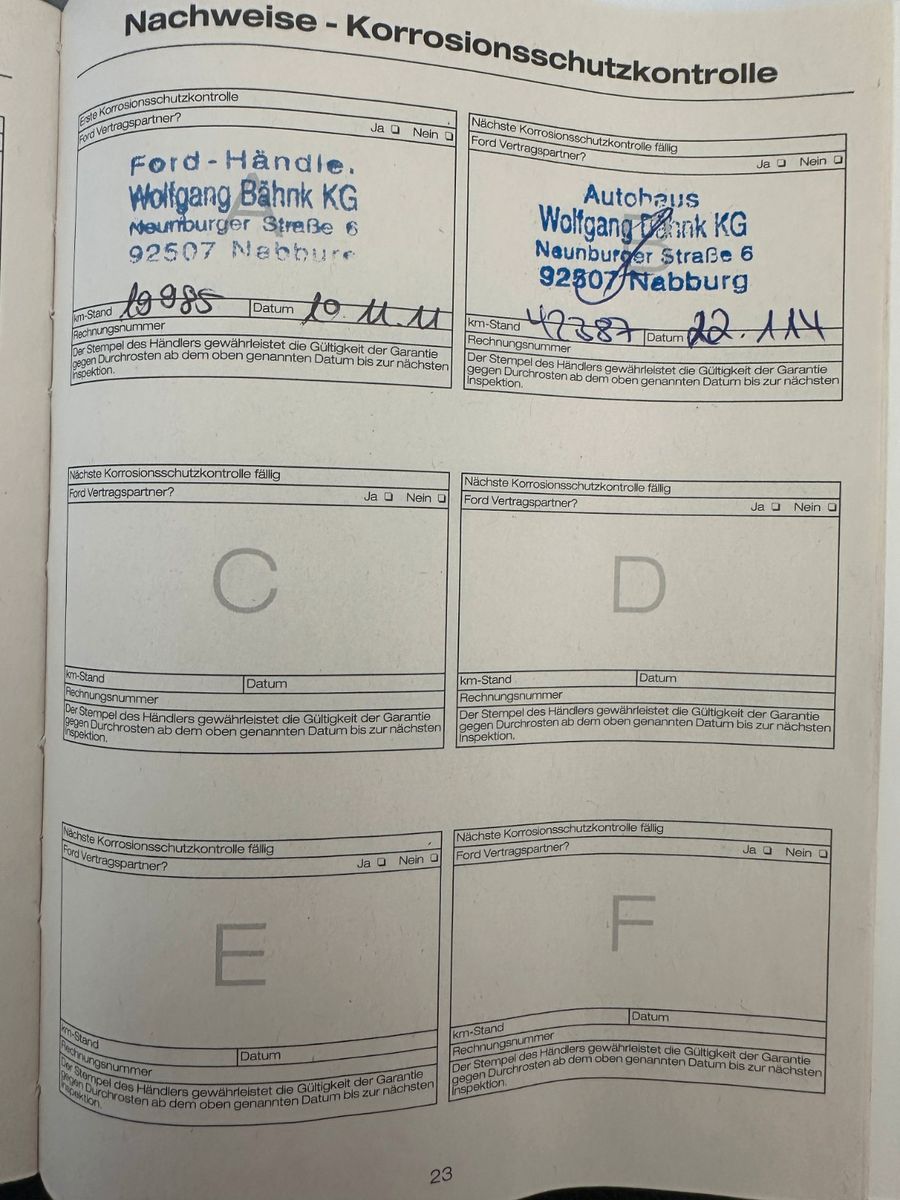 Nachweise - Korrosionsschutzkontrolle
Erste Korrosionsschutzkontrolle
Ford Vertragspartner?
Ja ❏ Nein ❏
Ford-Händle.
Wolfgang Bähnk KG
Neunburger Straße 6
92507 Nabburg
km-Stand 19985 Datum 10.11.11
Rechnungsnummer
Der Stempel des Händlers gewährleistet die Gültigkeit der Garantie
gegen Durchrosten ab dem oben genannten Datum bis zur nächsten
Inspektion.
Nächste Korrosionsschutzkontrolle fällig
Ford Vertragspartner?
Ja ❏ Nein ❏
B
Autohaus
Wolfgang Bähnk KG
Neunburger Straße 6
92507 Nabburg
km-Stand 42387 Datum 22.1.14
Rechnungsnummer
Der Stempel des Händlers gewährleistet die Gültigkeit der Garantie
gegen Durchrosten ab dem oben genannten Datum bis zur nächsten
Inspektion.
Nächste Korrosionsschutzkontrolle fällig
Ford Vertragspartner?
Ja ❏ Nein ❏
C
km-Stand Datum
Rechnungsnummer
Der Stempel des Händlers gewährleistet die Gültigkeit der Garantie
gegen Durchrosten ab dem oben genannten Datum bis zur nächsten
Inspektion.
Nächste Korrosionsschutzkontrolle fällig
Ford Vertragspartner?
Ja ❏ Nein ❏
D
km-Stand Datum
Rechnungsnummer
Der Stempel des Händlers gewährleistet die Gültigkeit der Garantie
gegen Durchrosten ab dem oben genannten Datum bis zur nächsten
Inspektion.
Nächste Korrosionsschutzkontrolle fällig
Ford Vertragspartner?
Ja ❏ Nein ❏
E
km-Stand Datum
Rechnungsnummer
Der Stempel des Händlers gewährleistet die Gültigkeit der Garantie
gegen Durchrosten ab dem oben genannten Datum bis zur nächsten
Inspektion.
Nächste Korrosionsschutzkontrolle fällig
Ford Vertragspartner?
Ja ❏ Nein ❏
F
km-Stand Datum
Rechnungsnummer
Der Stempel des Händlers gewährleistet die Gültigkeit der Garantie
gegen Durchrosten ab dem oben genannten Datum bis zur nächsten
Inspektion.
23